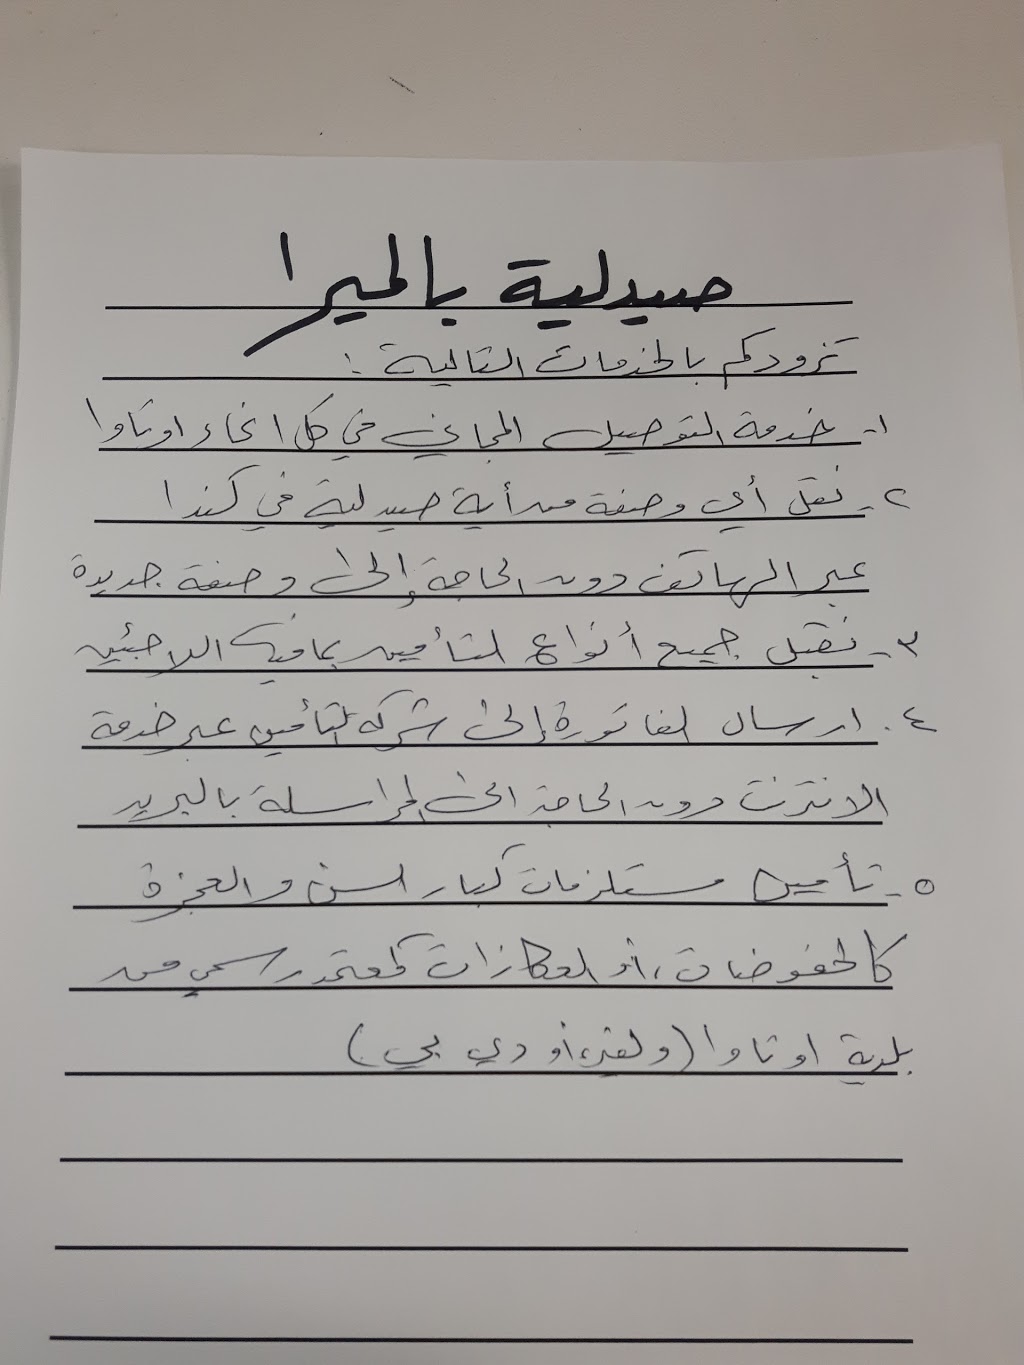 صيدلية بالميرا
تزودكم بالخدمات التالية :
١- خدمة التوصيل المجاني في كل انحاء اوتاوا
٢- نقل أي وصفة من أية صيدلية في كندا
عبر الهاتف دون الحاجة إلى وصفة جديدة
٣- نقبل جميع أنواع التأمين بما فيه اللاجئين
٤. ارسال الفاتورة إلى شركة التأمين عبر خدمة
الانترنت دون الحاجة الى المراسلة بالبريد
٥- تأمين مستلزمات كبار السن والعجزة
كالحفوضات، أو العكازات كمعتمد رسمي من
بلدية اوتاوا (ولفير، أو دي بي)